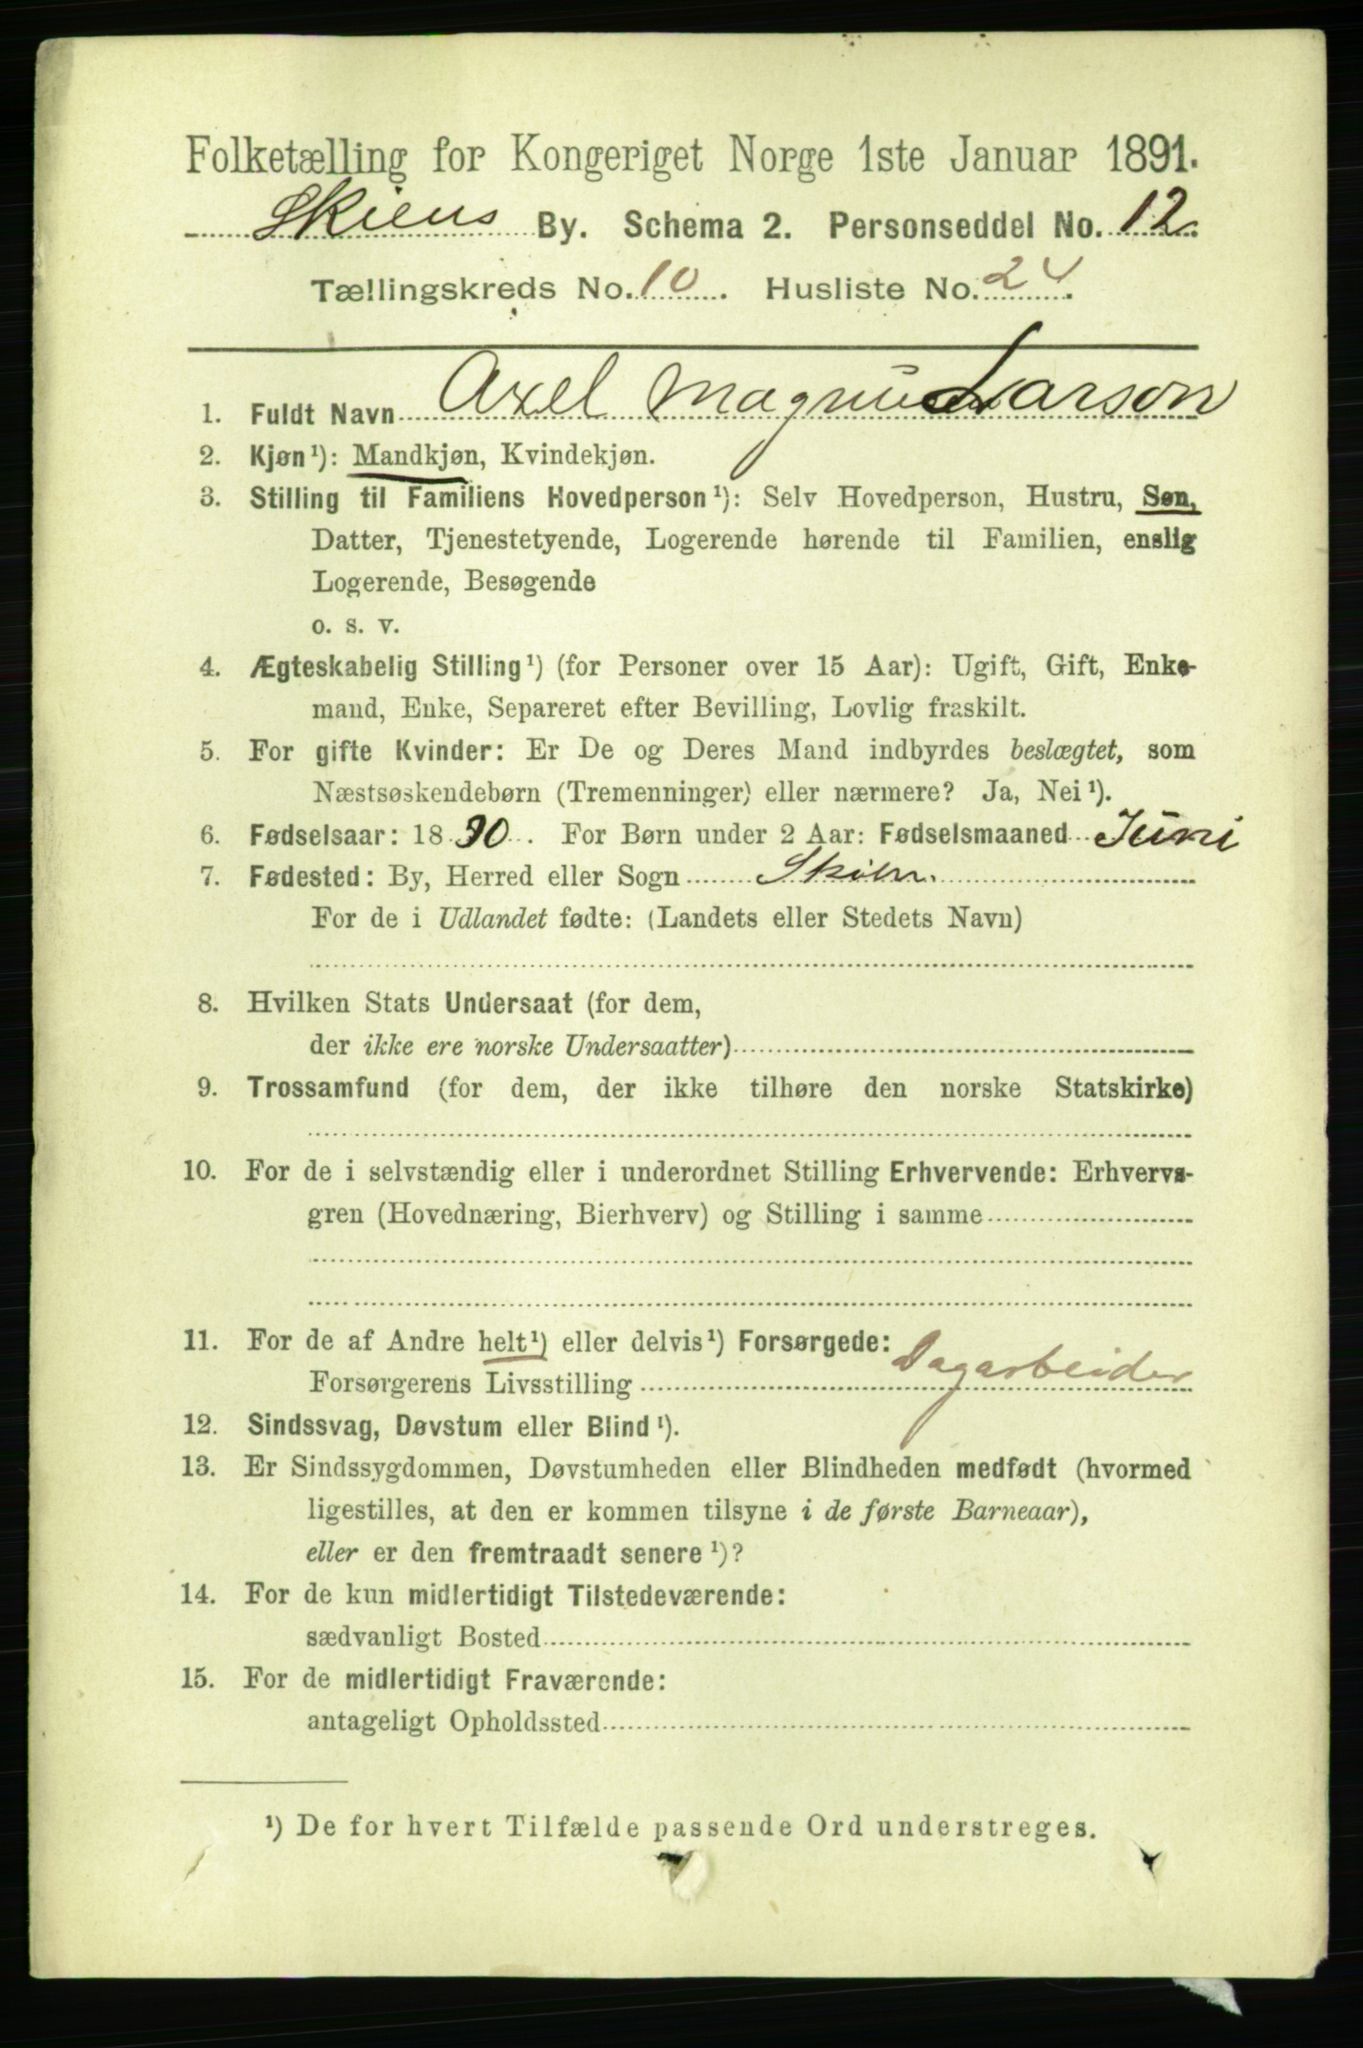 Folketælling for Kongeriget Norge 1ste Januar 1891.
Skiens By. Schema 2. Personseddel No. 12.
Tællingskreds No. 10. Husliste No. 24.
1. Fuldt Navn Axel Magnus Larson
2. Kjøn¹): Mandkjøn, Kvindekjøn.
3. Stilling til Familiens Hovedperson¹): Selv Hovedperson, Hustru, Søn,
Datter, Tjenestetyende, Logerende hørende til Familien, enslig
Logerende, Besøgende
o. s. v.
4. Ægteskabelig Stilling¹) (for Personer over 15 Aar): Ugift, Gift, Enke-
mand, Enke, Separeret efter Bevilling, Lovlig fraskilt.
5. For gifte Kvinder: Er De og Deres Mand indbyrdes beslægtet, som
Næstsøskendebørn (Tremenninger) eller nærmere? Ja, Nei¹).
6. Fødselsaar: 1890. For Børn under 2 Aar: Fødselsmaaned Juni
7. Fødested: By, Herred eller Sogn Skien.
For de i Udlandet fødte: (Landets eller Stedets Navn)
8. Hvilken Stats Undersaat (for dem,
der ikke ere norske Undersaatter)
9. Trossamfund (for dem, der ikke tilhøre den norske Statskirke)
10. For de i selvstændig eller i underordnet Stilling Erhvervende: Erhvervs-
gren (Hovednæring, Bierhverv) og Stilling i samme
11. For de af Andre helt¹) eller delvis¹) Forsørgede:
Forsørgerens Livsstilling Dagarbeider
12. Sindssvag, Døvstum eller Blind¹).
13. Er Sindssygdommen, Døvstumheden eller Blindheden medfødt (hvormed
ligestilles, at den er kommen tilsyne i de første Barneaar),
eller er den fremtraadt senere¹)?
14. For de kun midlertidigt Tilstedeværende:
sædvanligt Bosted
15. For de midlertidigt Fraværende:
antageligt Opholdssted
¹) De for hvert Tilfælde passende Ord understreges.